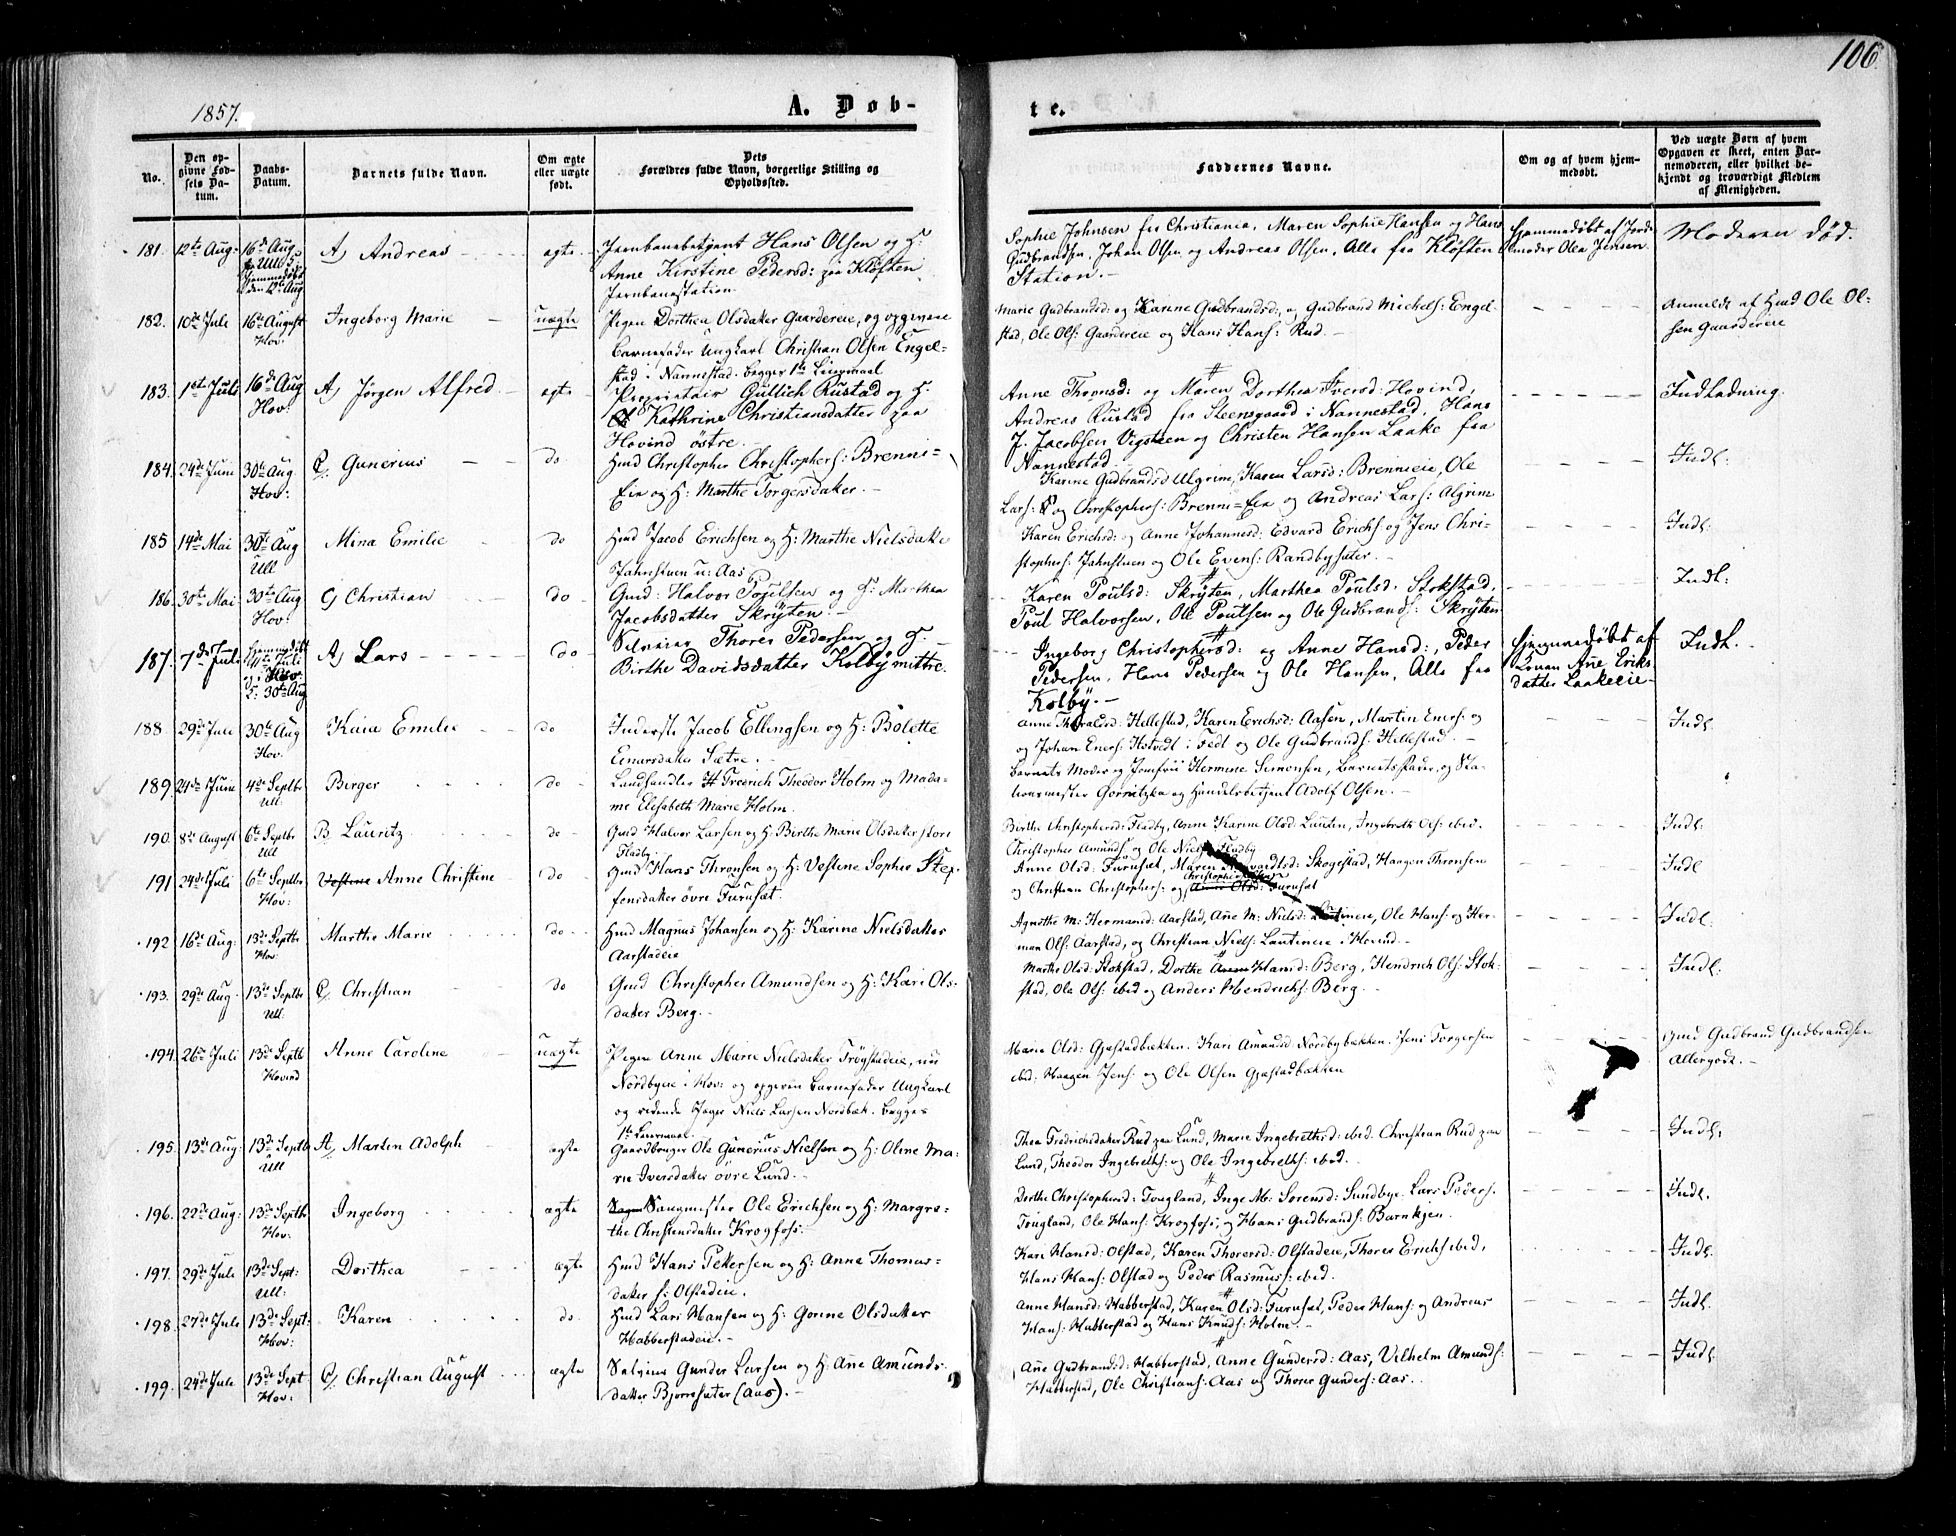 106.
1857.
A. Døb-
te.
No.
Den opgivne Fødsels Datum.
Daabs-Datum.
Barnets fulde Navn.
Om ægte eller uægte født.
Dets Forældres fulde Navn, borgerlige Stilling og Opholdssted.
Faddernes Navne.
Om og af hvem hjemmedøbt.
Ved uægte Børn af hvem Opgaven er skeet, enten Barnemoderen, eller hvilket bekjendt og troværdigt Medlem af Menigheden.
181. 12te Aug: 16de Aug. Ull: Hjemmedøbt den 12te Aug A) Andreas ægte
Jernbanebetjent Hans Olsen og H:
Anne Kirstine Pedersd: paa Kløften
Jernbanestation.
Sophie Johnsen fra Christiania, Maren Sophie Hansen og Hans
Gudbrandsen, Johan Olsen og Andreas Olsen, Alle fra Kløften
Station.
Hjemmedøbt af Jord-
moder Olea Jensen
Moderen død.
182. 10de Juli 16de August Hov: Ingeborg Marie uægte
Pigen Dorthea Olsdatter Gaardereie, og opgivne
Barnefader Ungkarl Christian Olsen Engel-
stad i Nannestad. begges 1te Leiermaal
Marie Gudbrandsd: og Karine Gudbrandsd: og Gudbrand Michels: Engel-
stad, Ole Ols: Gaardereie og Hans Hans: Rud.
Anmeldt af Hmd Ole Ol-
sen Gaardereie
183. 1ste Juli 16de Aug Hov: A) Jørgen Alfred ægte
Proprietair Gullich Rustad og H.
Kathrine Christiansdatter paa
Hovind østre.
Anne Thronsd: og Maren Dorthea Iversd: Hovind,
Andreas Rustad fra Steensgaard i Nannestad, Hans
J. Jacobsen Vigsteen og Christen Hansen Laake fra
Nannestad.
Indladning.
184. 24de Juni 30te Aug Hov: C) Gunerius do
Hmd Christopher Christophers: Brenni-
Eie og H: Marthe Torgersdatter.
Karine Gudbrandsd Algrim, Karen Larsd: Brennieie, Ole
Lars: og Christophers: Brenni-Eie og Andreas Lars: Algrim
Indl:
185 14de Mai 30te Aug Ull Mina Emilie do
Hmd Jacob Erichsen og H: Marthe Nielsdatter
Jahrstuen u: Aas
Karen Erichsd: og Anne Johannesd: Edvard Erichs: og Jens Chri-
stophers: Jahrstuen og Ole Evens: Randbysæter.
Indl:
186. 30te Mai 30te Aug Hov: C) Christian do
Gmd: Halvor Poulsen og H: Marthea
Jacobsdatter Skryten.
Karen Poulsd: Skryten, Marthea Poulsd. Stokstad,
Poul Halvorsen, Ole Poulsen og Ole Gudbrands: Skryten
Indl:
187. 7de Juli Hjemmedøbt 11te Juli og i Hov: K: 30te Aug A) Lars do
Selveier Thorer Pedersen og H.
Birthe Davidsdatter Kolby mittre.
Ingeborg Christophersd: og Anne Hansd:, Peder
Pedersen, Hans Pedersen og Ole Hansen, Alle fra
Kolby.
Hjemmedøbt af
Konen Ane Eriks-
datter Laakeeie
Indl.
188 29de Juli 30te Aug Hov. Kaia Emilie do
Inderste Jacob Ellingsen og H: Bolette
Einarsdatter Sætre.
Anne Thoralsd: Hellestad, Karen Erichsd: Aasen, Martin Eners: og
og Johan Eners: Hstvedt i Fedt og Ole Gudbrands: Hellestad.
Indl.
189. 24de Juni 4de Septbr Ull: Birger do
Landhandler H Fredrich Theodor Holm og Mada-
me Elisabeth Marie Holm.
Barnets Moder og Jomfru Hermine Simonsen, Barnets Fader, og Sta-
tionsmester Gorritzka og Handelsbetjent Adolf Olsen.
190. 8de August 6te Septbr Ull B) Lauritz do
Gmd Halvor Larsen og H: Birthe Marie Olsdatter store
Fladby
Birthe Christophersd: Fladby, Anne Karine Olsd: Lauten, Ingebreth Ols: ibid.
Christopher Amunds: og Ole Niels: Fladby
Indl:
191 24de Juli 6te Septbr Hov: Vestine Anne Christine do
Hmd Hans Thronsen og H: Vestine Sophie Stef-
fensdatter øvre Furuset.
Anne Olsd: Furuset, Maren Skogestad, Haagen Thronsen
og Christian Christophers: og Furuset
Indl
192 16de Aug: 13de Septbr Hov. Marthe Marie do
Hmd Magnus Johansen og H: Karine Nielsdatter
Aarstadeie
Agnethe M: Hermansd: Aarstad, Ane M: Nielsd: Lautineie, Ole Hans: og Her-
man Ols: Aarstad, og Christian Niels: Lautineie i Hovind.
Indl:
193. 29de Aug. 13de Septbr Ull: C) Christian do
Gmd Christopher Amundsen og H: Kari Ols-
datter Berg.
Marthe Olsd: Stokstad, Dorthe Hansd: Berg, Hendrich Ols: Stok-
stad, Ole Ols: ibid og Anders Hendrichs: Berg.
Indl:
194. 26de Juli 13de Septb Hovind Anne Caroline uægte
Pigen Anne Marie Nielsdatter Trøgstadeie, nu
Nordbyeie i Hov: og opgiven barnefader Ungkarl
og ridende Jæger Niels Larsen Nordbæk. begges
1te Leiermaal
Marie Olsd: Gjestadbækken. Kari Amundsd Nordbybækken. Jens Torgersen
ibid: Haagen Jens: og Ole Olsen Gjestadbækken
Gmd Gudbrand Gudbrandsen
Allergodt.
195. 13de Aug: 13de Septb Ull A) Martin Adolph ægte
Gaardbruger Ole Gunerius Nielsen og H: Oline Ma-
rie Iversdatter øvre Lund.
Thea Fredrichsdatter Rud paa Lund, Marie Ingebrethsd: ibid. Christian Rud paa
Lund, Theodor Ingebreths: og Ole Ingebreths: ibid.
Indl:
196. 22de Aug: 13de Septb Hov: Ingeborg ægte
Saugmester Ole Erichsen og H: Margre-
the Christensdatter Krogfoss.
Dorthe Christophersd: Tougland, Inge M: Sørensd: Sundbye. Lars Peders.
Tougland, Ole Hans: Krogfoss, og Hans Gudbrands: Barnkjen.
Indl.
197. 29de Juli 13de Sept: Ull: Dorthea ægte
Hmd Hans Petersen og H: Anne Thomas-
datter s: Olstadeie.
Kari Hansd: Olstad, Karen Thoresd: Olstadeie, Thorer Erichs: ibid,
Hans Hans: Olstad og Peder Rasmus: ibid.
Indl.
198. 27de Juli 13de Sept: Hov: Karen do.
Hmd Lars Hansen og H: Gorine Olsdatter
Habberstadeie.
Anne Hansd: Habberstad, Karen Olsd: Furuset, Peder Hans: og Andreas
Hans: Habberstad og Hans Knuds: Holm.
Indl.
199. 24de Juli 13de Sept Hov: C) Christian August ægte
Selveier Gunder Larsen og H: Ane Amunds-
datter Bjørresæter (Aas).
Ane Gudbrandsd: Habberstad, Anne Gundersd: Aas, Vilhelm Amunds:
Habberstad, Ole Christians: Aas og Thorer Gunders: Aas.
Indl.